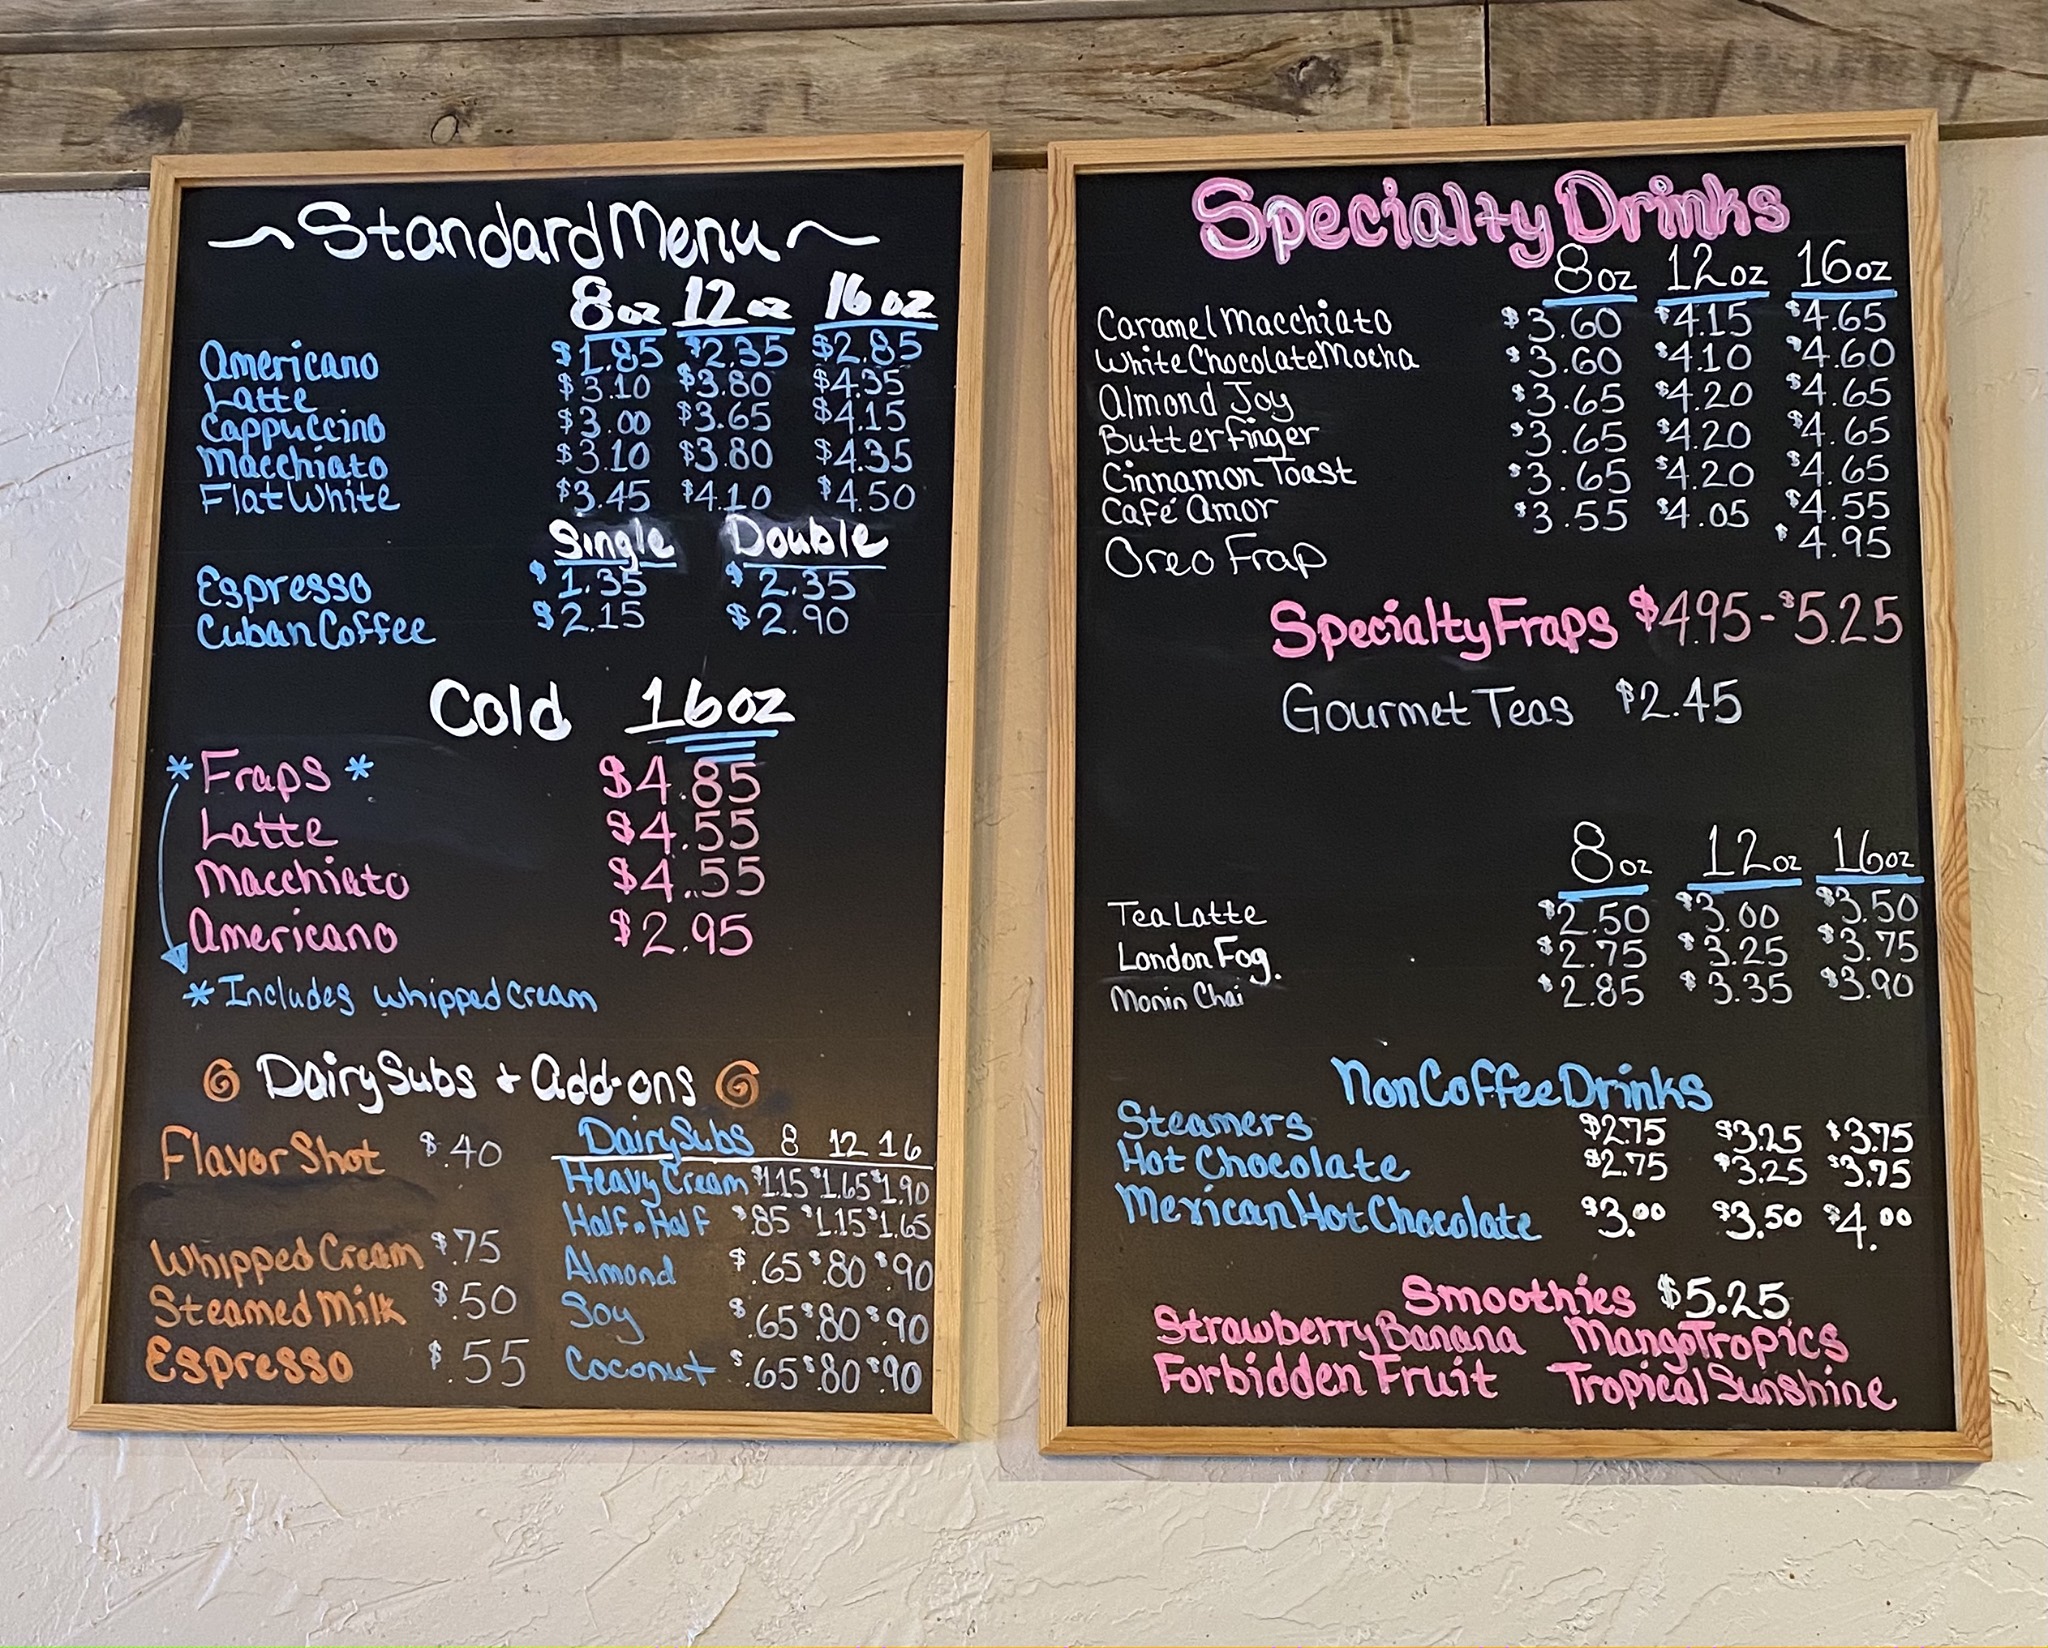 ~Standard Menu~
8oz 12oz 16oz
Americano $1.85 $2.35 $2.85
Latte $3.10 $3.80 $4.35
Cappuccino $3.00 $3.65 $4.15
Macchiato $3.10 $3.80 $4.35
Flat White $3.45 $4.10 $4.50
Single Double
Espresso $1.35 $2.35
Cuban Coffee $2.15 $2.90
Cold 16oz
*Fraps* $4.85
Latte $4.55
Macchiato $4.55
Americano $2.95
*Includes whipped cream
Dairy Subs + Add-ons
Flavor Shot $.40
Whipped Cream $.75
Steamed Milk $.50
Espresso $.55
Dairy Subs 8 12 16
Heavy Cream $1.15 $1.65 $1.90
Half n Half $.85 $1.15 $1.65
Almond $.65 $.80 $.90
Soy $.65 $.80 $.90
Coconut $.65 $.80 $.90
Specialty Drinks
8oz 12oz 16oz
Caramel Macchiato $3.60 $4.15 $4.65
White Chocolate Mocha $3.60 $4.10 $4.60
Almond Joy $3.65 $4.20 $4.65
Butterfinger $3.65 $4.20 $4.65
Cinnamon Toast $3.65 $4.20 $4.65
Café Amor $3.55 $4.05 $4.55
Oreo Frap $4.95
Specialty Fraps $4.95-$5.25
Gourmet Teas $2.45
8oz 12oz 16oz
Tea Latte $2.50 $3.00 $3.50
London Fog. $2.75 $3.25 $3.75
Monin Chai $2.85 $3.35 $3.90
Non Coffee Drinks
Steamers $2.75 $3.25 $3.75
Hot Chocolate $2.75 $3.25 $3.75
Mexican Hot Chocolate $3.00 $3.50 $4.00
Smoothies $5.25
Strawberry Banana Mango Tropics
Forbidden Fruit Tropical Sunshine